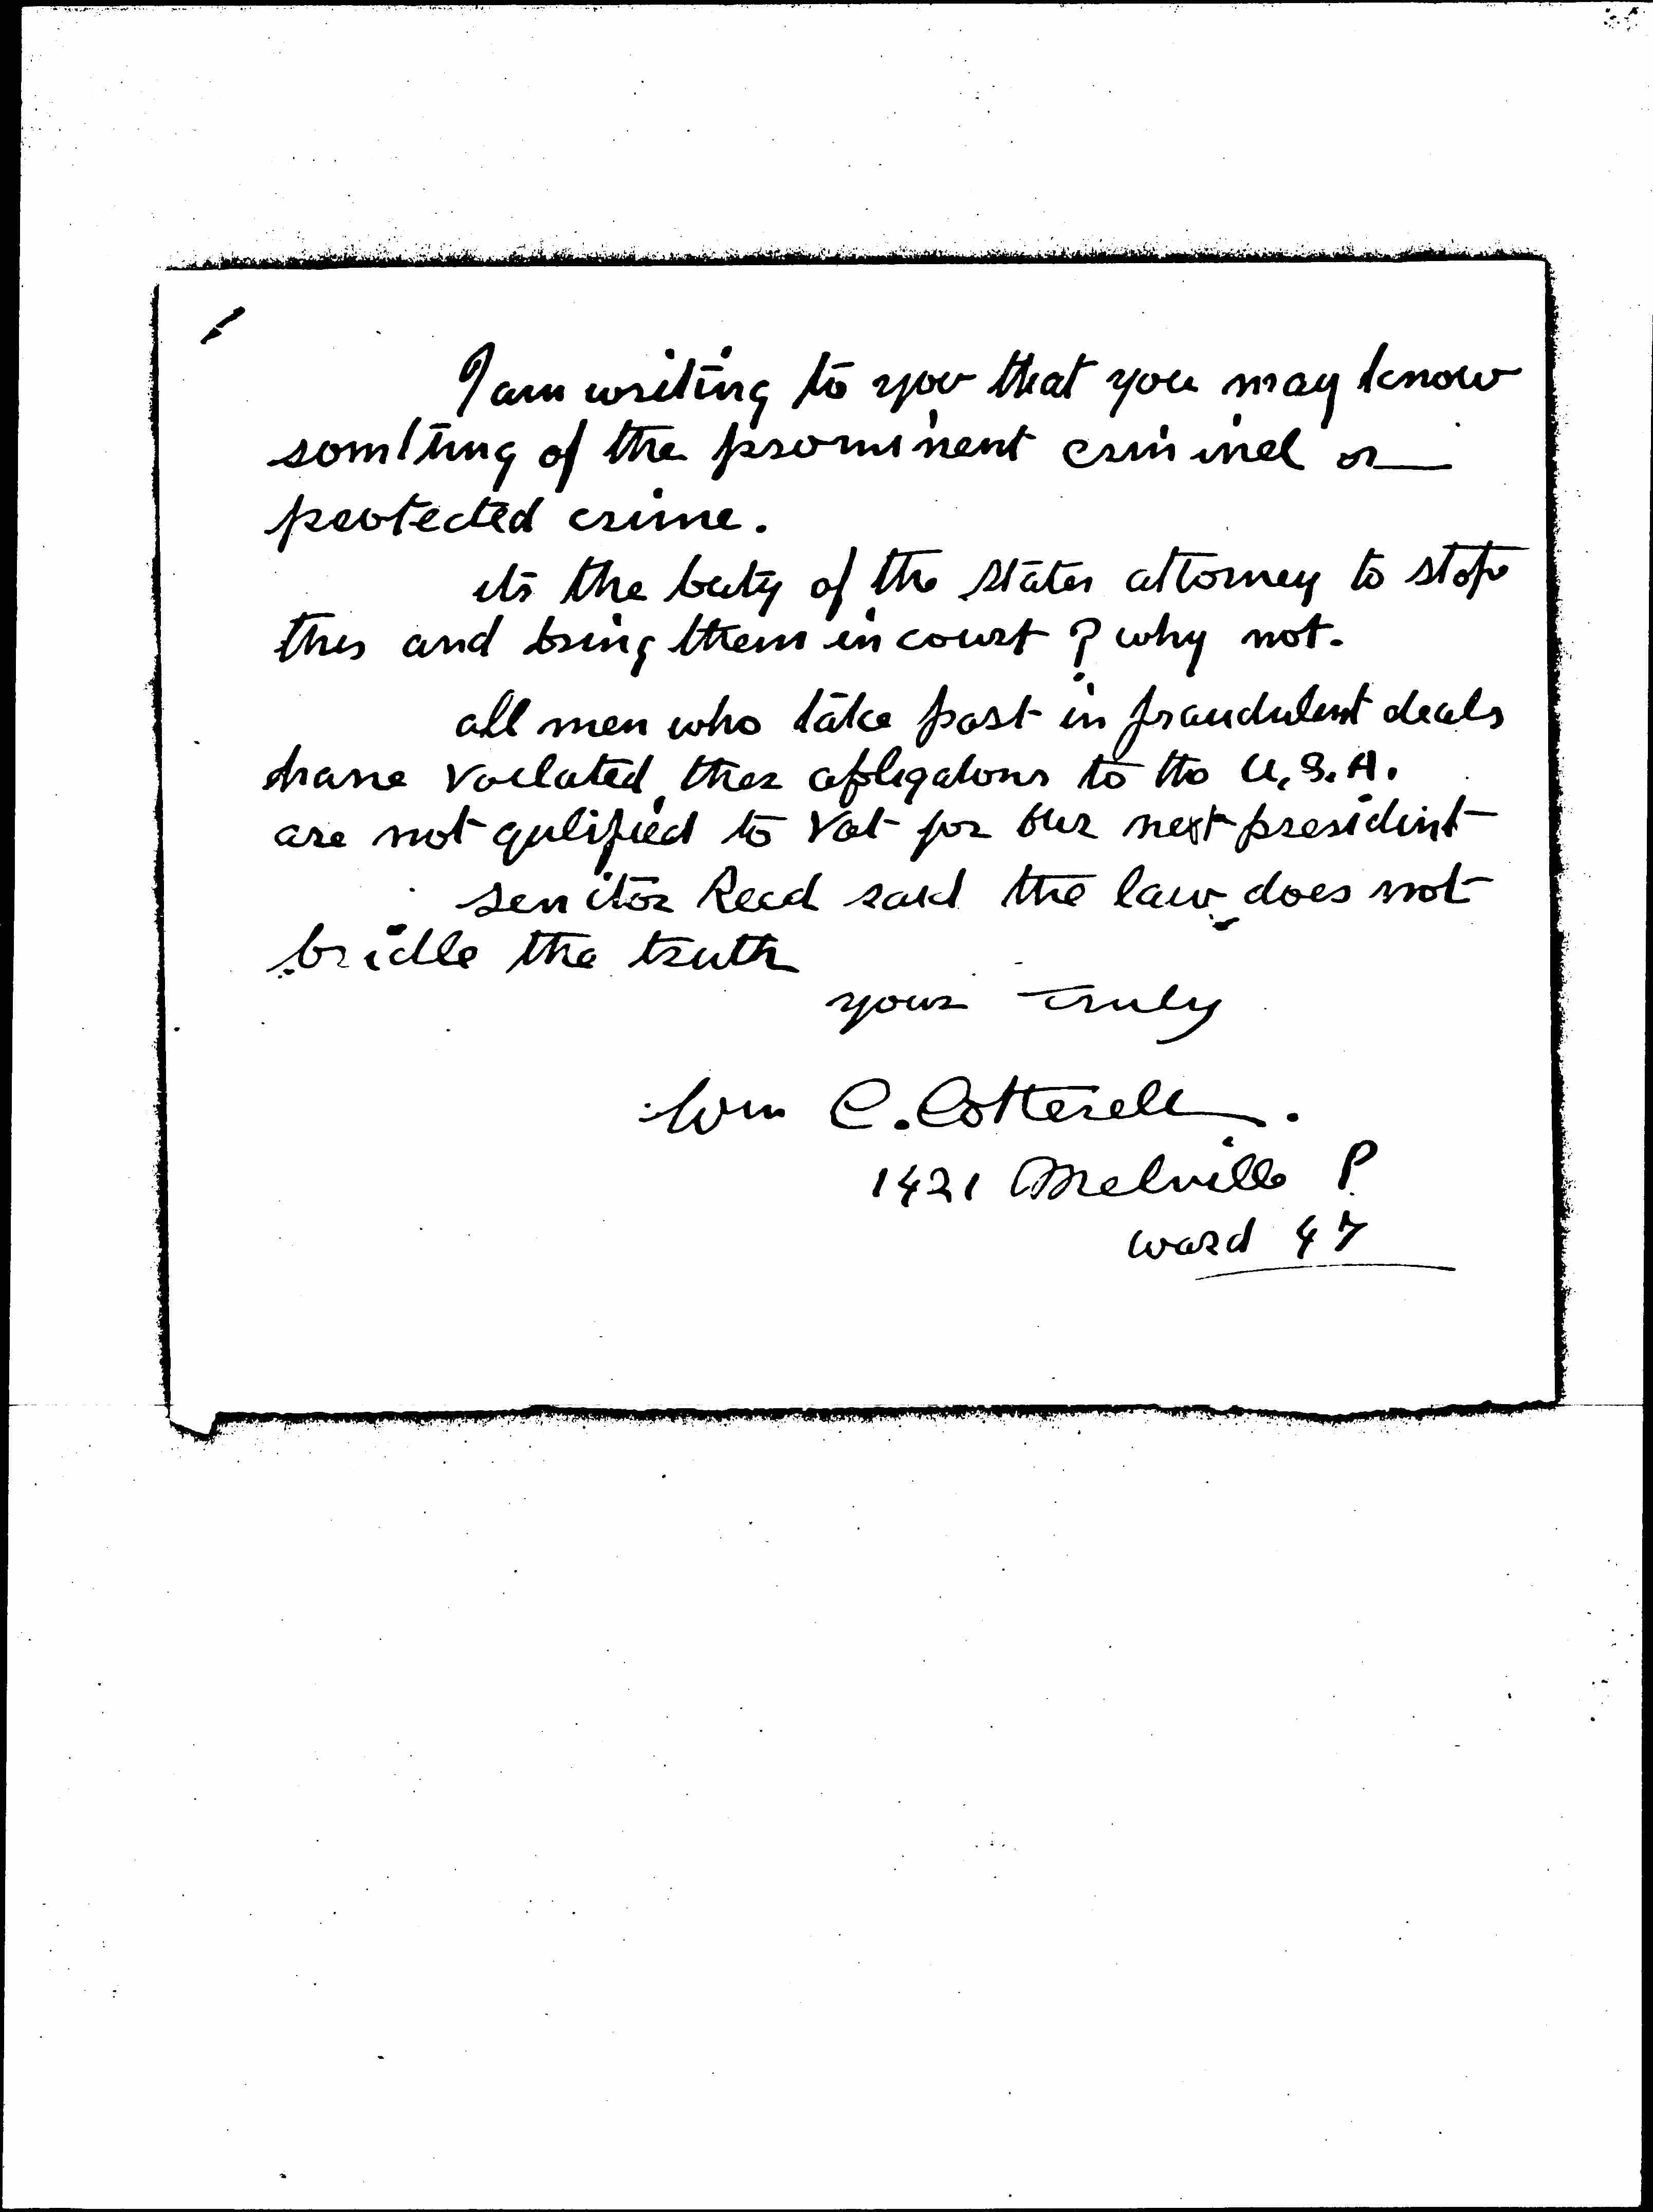 I am writing to you that you may know
somthing of the prominent criminel or
protected crime.
its the buty of the states attorney to stop
this and bring them in court ? why not.
all men who take part in fraudulent deals
have voilated ther obligatons to the U.S.A.
are not qulified to vot for our next president
senitor Reed said the law does not
bridle the truth
your truly
Wm C. Cotterell.
1421 Melville P.
ward 47